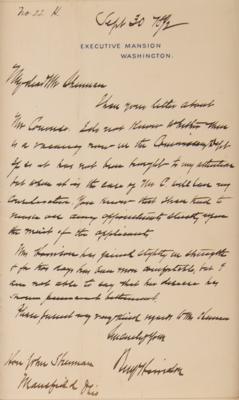 No. 22 H.
Sept 30 1892
EXECUTIVE MANSION
WASHINGTON.
My dear Mr Sherman
I have your letter about
Mr. I do not know whether there
is a vacancy now in the Dept
as it has not been brought to my attention
but when it is the case of Mr. C. will have my
consideration. You know that I have tried to
make every appointment strictly upon
the merit of the applicant.
Mrs Harrison has gained slightly in strength
& for this day has been more comfortable, but I
am not able to say that her disease has
shown permanent betterment.
Please present my very kind regards to Mrs Sherman
Sincerely Yours
Benj Harrison
Hon John Sherman
Mansfield Ohio